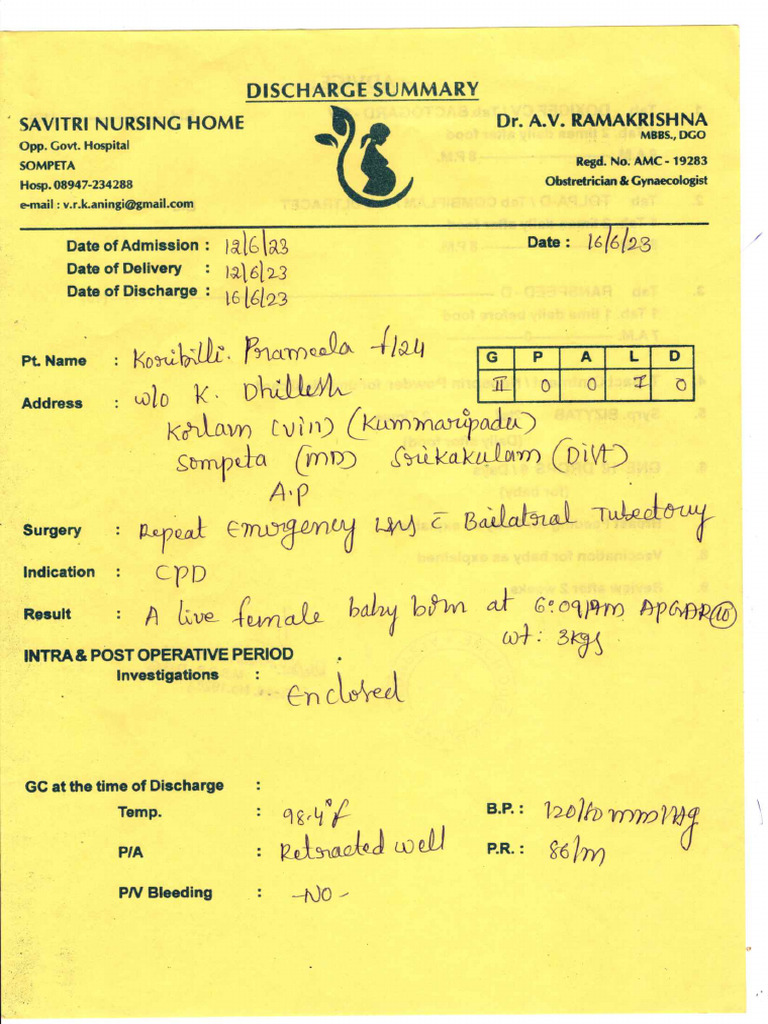 DISCHARGE SUMMARY
SAVITRI NURSING HOME
Opp. Govt. Hospital
SOMPETA
Hosp. 08947-234288
e-mail : v.r.k.aningi@gmail.com
Dr. A.V. RAMAKRISHNA
MBBS., DGO
Regd. No. AMC - 19283
Obstretrician & Gynaecologist
Date of Admission : 12/6/23
Date : 16/6/23
Date of Delivery : 12/6/23
Date of Discharge : 16/6/23
Pt. Name : Koribilli. Prameela f/24
G P A L D
II 0 0 I 0
Address : w/o K. Dhillesh
Korlam (vill) (Kummaripadu)
Sompeta (MD) Srikakulam (Dist)
A.P
Surgery : Repeat Emergency LSCS c Bailatral Tubectomy
Indication : CPD
Result : A live female baby born at 6:09 AM APGAR 10
wt: 3kgs
INTRA & POST OPERATIVE PERIOD
Investigations : Enclosed
GC at the time of Discharge :
Temp. : 98.4°f B.P. : 120/80 mmHg
P/A : Retracted well P.R. : 86/m
P/V Bleeding : -NO-